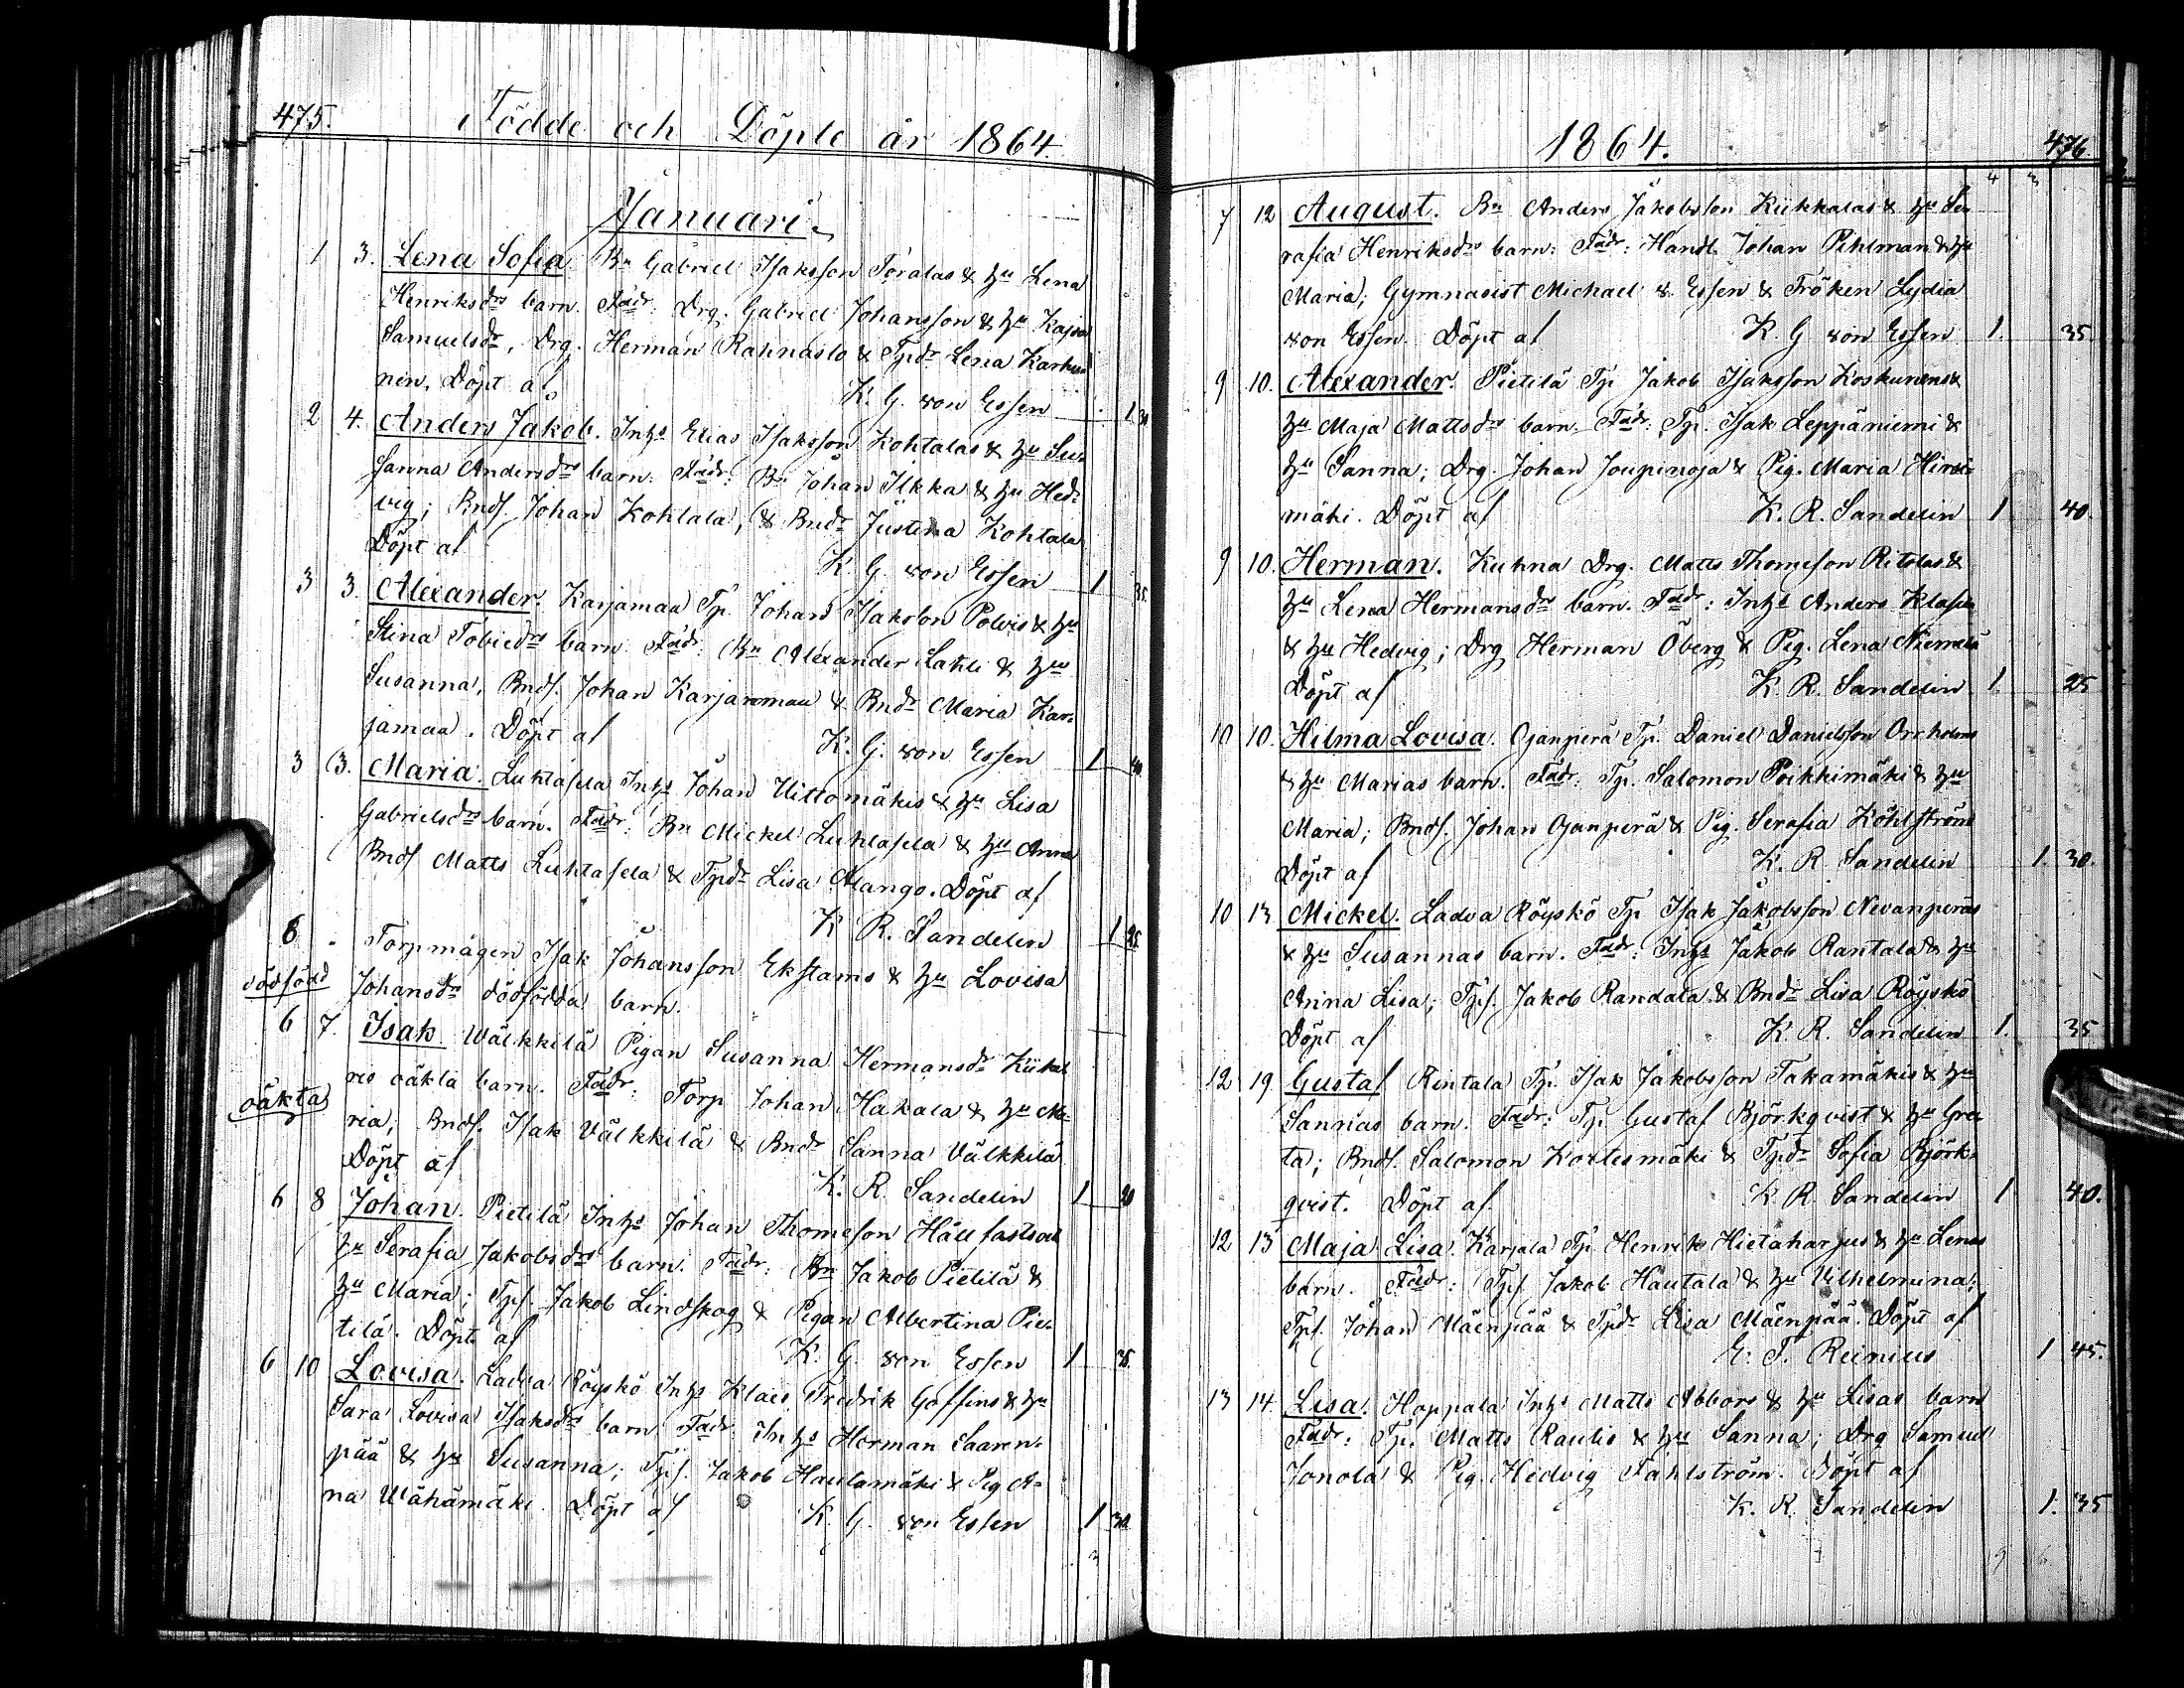 475.
Födde och Döpte år 1864.
Januari
1 3. Lena Sofia. Bn Gabriel Isaksson Toralas & hu Lena
Henriksdrs barn. Fadr: Drg. Gabriel Johansson & hu Kajsa
Samuelsdr, Drg. Herman Rahnasto & Tpdr Lena Karhu
nen. Döpt af K. G. von Essen 1 30
2 4. Anders Jakob. Inhs Elias Isaksson Kohtalas & hu Su-
sanna Andersdrs barn. Fadr: Bn Johan Ilkka & hu Hed-
vig; Bnds. Johan Kohtala, & Bndr Justina Kohtala
Döpt af K. G. von Essen 1 35.
3 3. Alexander. Karjamaa Tp. Johan Isakson Polvis & hu
Stina Tobiedrs barn. Fadr: Bn Alexander Lahti & hu
Susanna, Bnds. Johan Karjamaa & Bndr Maria Kar-
jamaa. Döpt af K. G. von Essen 1 40
3 3. Maria. Luhtasela Inhs Johan Uittomäkis & hu Lisa
Gabrielsdrs barn. Fadr: Bn Mickel Luhtasela & hu Anna
Bnds Matts Luhtasela & Tpdr Lisa Alango. Döpt af
K R. Sandelin 1 25.
6 " Torpmågen Isak Johansson Ekstams & hu Lovisa
dödfödd Johansdrs dödfödda barn.
6 7. Isak. Wälkkilä Pigan Susanna Hermansdr Kiikeri
oäkta res oäkta barn. Fadr: Torp Johan Hakala & hu Ma-
ria; Bnds. Isak Välkkilä & Bndr Sanna Välkkilä
Döpt af K. R. Sandelin 1 20
6 8 Johan. Pietilä Inhs Johan Thomeson Hällfasts och
hu Serafia Jakobsdrs barn. Fadr: Bn Jakob Pietilä &
hu Maria; Tps. Jakob Lindskog & Pigan Albertina Pie-
tilä. Döpt af K. G. von Essen 1 35.
6 10 Lovisa. Ladva Röyskö Inhs Klaes Fredrik Goffins & hu
Sara Lovisa Isaksdrs barn. Fadr: Inhs Herman Saaren-
pää & hu Susanna; Tps. Jakob Hautamäki & Pig An-
na Wähämäki. Döpt af K. G. von Essen 1 30.
1864.
476
7 12 August. Bn Anders Jakobsson Kiikkalas & hu Se-
rafia Henriksdrs barn: Fadr: Handl. Johan Pihlman & hu
Maria; Gymnasist Michael v. Essen & Fröken Lydia
von Essen. Döpt af K. G von Essen 1. 35
9 10. Alexander. Pietilä Tp. Jakob Isaksson Koskunens &
hu Maja Mattsdrs barn. Fadr: Tp. Isak Leppäniemi &
hu Sanna; Drg. Johan Joupinoja & Pig. Maria Hirvi-
mäki. Döpt af K. R. Sandelin 1 40.
9 10. Herman. Kuhna Drg. Matts Thomeson Ritolas &
hu Lena Hermansdrs barn. Fadr: Inhs Anders Klasu
& hu Hedvig; Drg Herman Öberg & Pig. Lena Niemelä
Döpt af K. R. Sandelin 1. 25
10 10. Hilma Lovisa. Ojanperä Tp. Daniel Danielsson Orrholms
& hu Marias barn. Fadr: Tp. Salomon Poikkimäki & hu
Maria; Bnds. Johan Ojanperä & Pig. Serafia Köhlström
Döpt af K. R. Sandelin 1. 30.
10 13. Mickel. Ladva Röyskö Tp Isak Jakobsson Nevanperäs
& hu Susannas barn. Fadr: Inhs Jakob Rantala & hu
Anna Lisa; Tps. Jakob Randala & Bndr Lisa Röyskö
Döpt af K. R. Sandelin 1. 35
12 19 Gustaf Rintala Tp. Isak Jakobsson Takamäkis & hu
Sannas barn. Fadr: Tp. Gustaf Björkqvist & hu Gre-
ta; Bnds. Salomon Kortesmäki & Tpdr Sofia Björk-
qvist. Döpt af. K R Sandelin 1 40.
12 13 Maja Lisa. Karjala Tp. Henrik Hietaharjus & hu Lenas
barn. Fadr: Tps. Jakob Hautala & hu Vilhelmina;
Tps. Johan Mäenpää & Tpdr Lisa Mäenpää. Döpt af
E. T. Reinius 1 45.
13 14. Lisa. Hoppala Inhs Matts Abbors & hu Lisas barn
Fadr: Tp. Matts Raulio & hu Sanna; Drg Samuel
Jonola & Pig. Hedvig Fahlström. Döpt af
K. R. Sandelin 1. 35